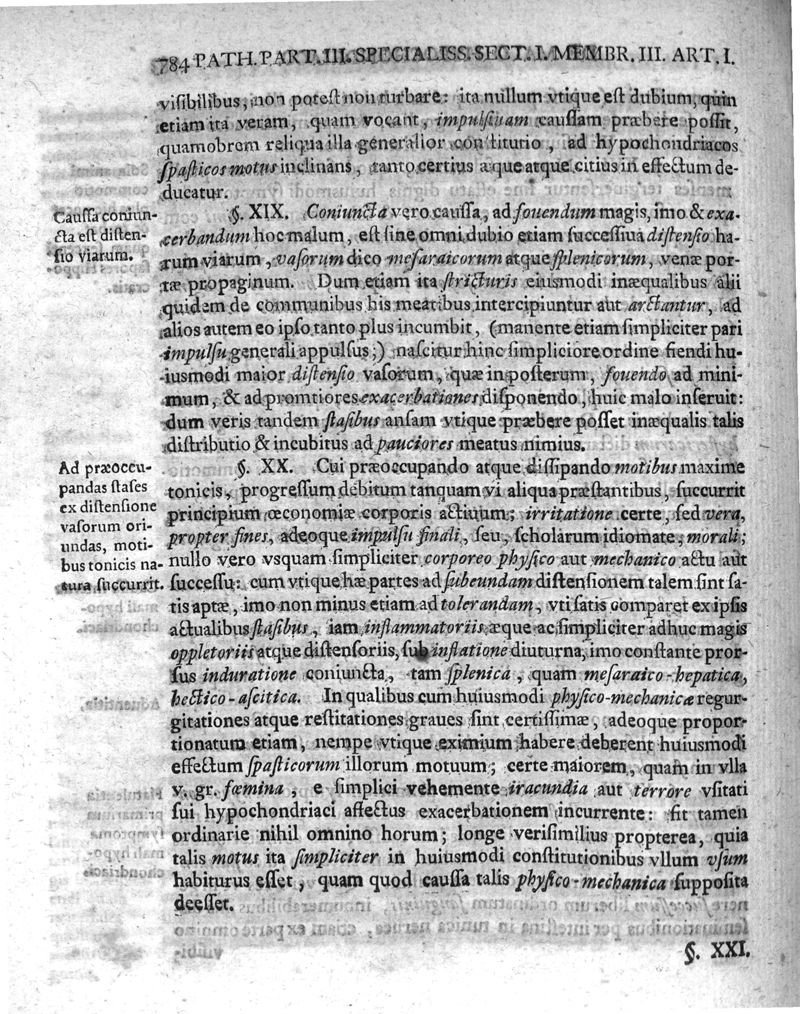 784 PATH. PART. III. SPECIALISS. SECT. I. MEMBR. III. ART. I.
visibilibus, non potest non turbare: ita nullum vtique est dubium, quin
etiam ita veram, quam vocant, impulsiuam caussam præbere possit,
quamobrem reliqua illa generalior constitutio, ad hypochondriacos
spasticos motus inclinans, tanto certius æque atque citius in effectum de-
ducatur.
Caussa coniun-
cta est disten-
sio viarum.
§. XIX. Coniuncta vero caussa, ad fouendum magis, imo & exa-
cerbandum hoc malum, est sine omni dubio etiam successiua distensio ha-
rum viarum, vasorum dico mesaraicorum atque splenicorum, venæ por-
tæ propaginum. Dum etiam ita stricturis eiusmodi inæqualibus alii
quidem de communibus his meatibus intercipiuntur aut arctantur, ad
alios autem eo ipso tanto plus incumbit, (manente etiam simpliciter pari
impulsu generali appulsus;) nascitur hinc simpliciore ordine fiendi hu-
iusmodi maior distensio vasorum, quæ in posterum, fouendo ad mini-
mum, & ad promtiores exacerbationes disponendo, huic malo inseruit:
dum veris tandem stasibus ansam vtique præbere posset inæqualis talis
distributio & incubitus ad pauciores meatus nimius.
Ad præoccu-
pandas stases
ex distensione
vasorum ori-
undas, moti-
bus tonicis na-
tura succurrit.
§. XX. Cui præoccupando atque dissipando motibus maxime
tonicis, progressum debitum tanquam vi aliqua præstantibus, succurrit
principium œconomiæ corporis actiuum; irritatione certe, sed vera,
propter fines, adeoque impulsu finali, seu, scholarum idiomate, morali;
nullo vero vsquam simpliciter corporeo physico aut mechanico actu aut
successu: cum vtique hæ partes ad subeundam distensionem talem sint sa-
tis aptæ, imo non minus etiam ad tolerandam, vti satis comparet ex ipsis
actualibus stasibus, iam inflammatoriis æque ac simpliciter adhuc magis
oppletoriis atque distensoriis, sub inflatione diuturna, imo constante pror-
sus induratione coniuncta, tam splenica, quam mesaraico-hepatica,
hectico-ascitica. In qualibus cum huiusmodi physico-mechanicæ regur-
gitationes atque restitationes graues sint certissimæ, adeoque propor-
tionatum etiam, nempe vtique eximium habere deberent huiusmodi
effectum spasticorum illorum motuum; certe maiorem, quam in vlla
v. gr. fœmina, e simplici vehemente iracundia aut terrore vsitati
sui hypochondriaci affectus exacerbationem incurrente: fit tamen
ordinarie nihil omnino horum; longe verisimilius propterea, quia
talis motus ita simpliciter in huiusmodi constitutionibus vllum vsum
habiturus esset, quam quod caussa talis physico-mechanica supposita
deesset.
§. XXI.